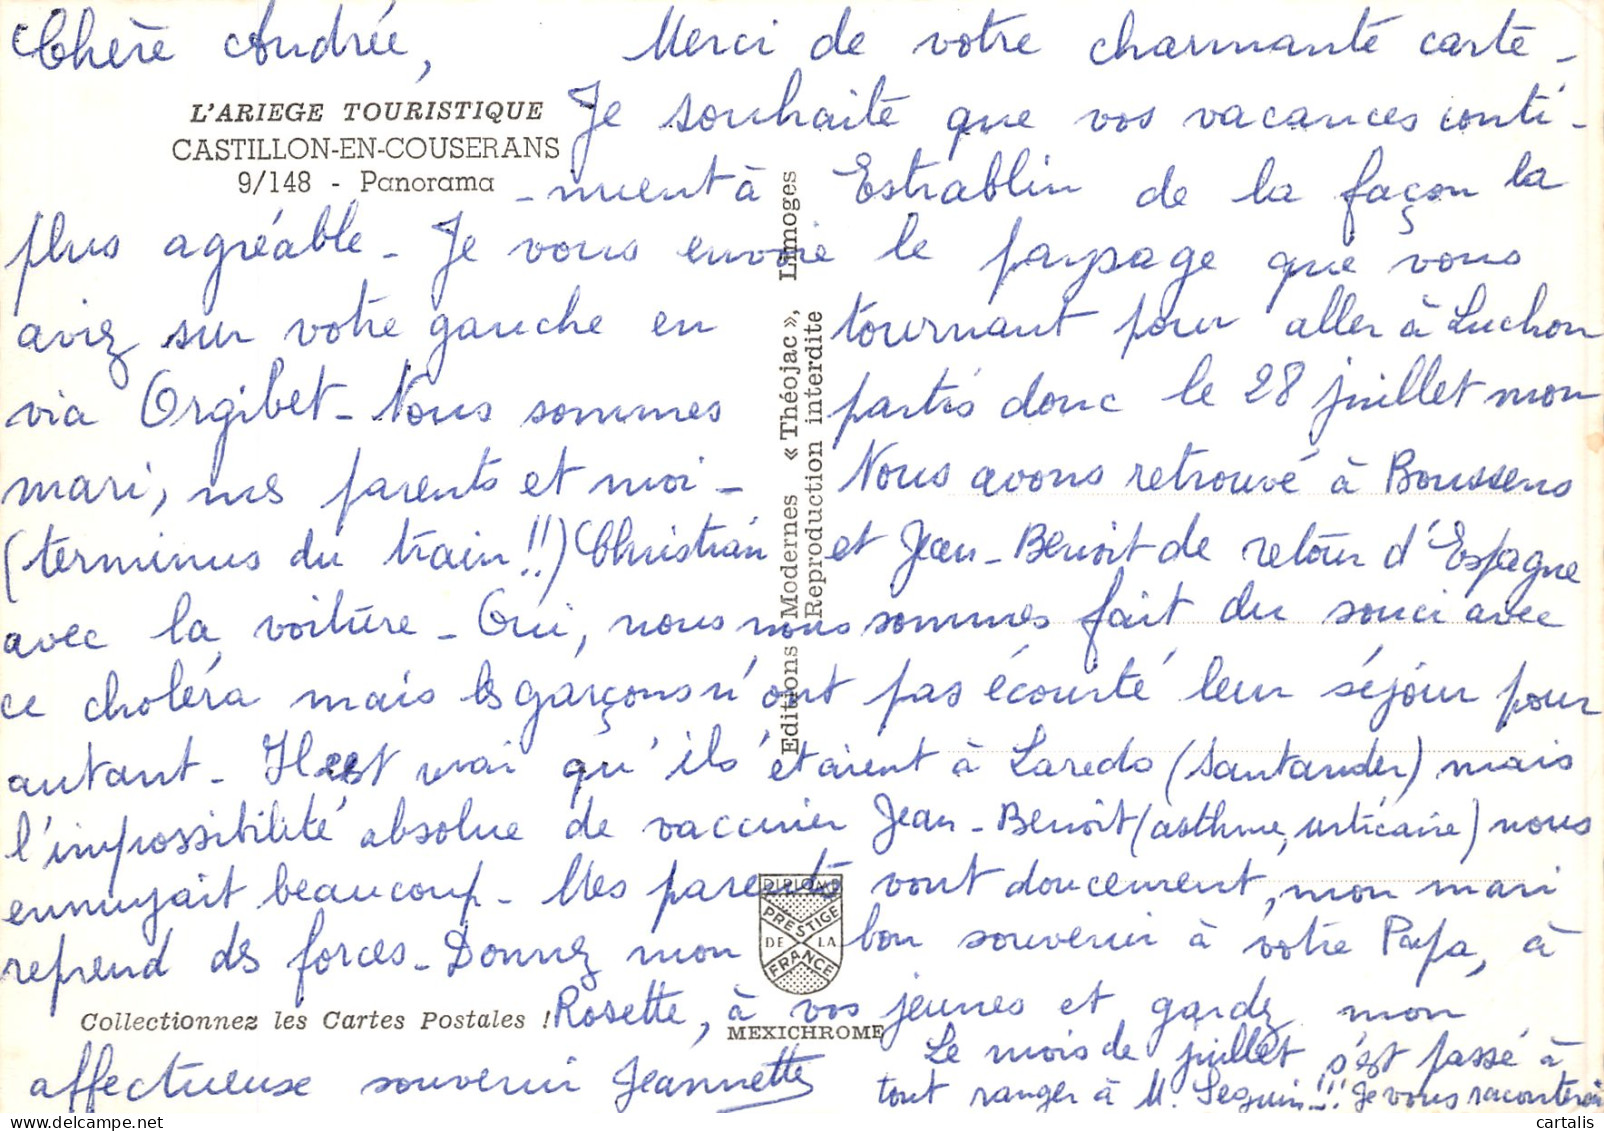 Chère Andrée, Merci de votre charmante carte -
L'ARIEGE TOURISTIQUE
Je souhaite que vos vacances conti -
CASTILLON-EN-COUSERANS
9/148 - Panorama
- nuent à Estrablin de la façon la
plus agréable - Je vous envoie le paysage que vous
aviez sur votre gauche en tournant pour aller à Luchon
via Orgibet - Nous sommes partis donc le 28 juillet mon
mari, mes parents et moi - Nous avons retrouvé à Boussens
(terminus du train!!) Christian et Jean-Benoit de retour d'Espagne
avec la voiture - Oui, nous nous sommes fait du souci avec
ce choléra mais les garçons n'ont pas écourté leur séjour pour
autant - Il est vrai qu'ils étaient à Laredo (Santander) mais
l'impossibilité absolue de vacciner Jean-Benoit (asthme, urticaire) nous
ennuyait beaucoup - Mes parents vont doucement, mon mari
reprend des forces - Donnez mon bon souvenir à votre Papa, à
Rosette, à vos jeunes et gardez mon
affectueux souvenir Jeannette
Le mois de juillet s'est passé à
tout ranger à M. Seguin!!! Je vous raconterai
Collectionnez les Cartes Postales !
Editions Modernes « Théojac », Limoges
Reproduction interdite
DIPLOME
PRESTIGE
DE LA
FRANCE
MEXICHROME
www.delcampe.net
cartalis